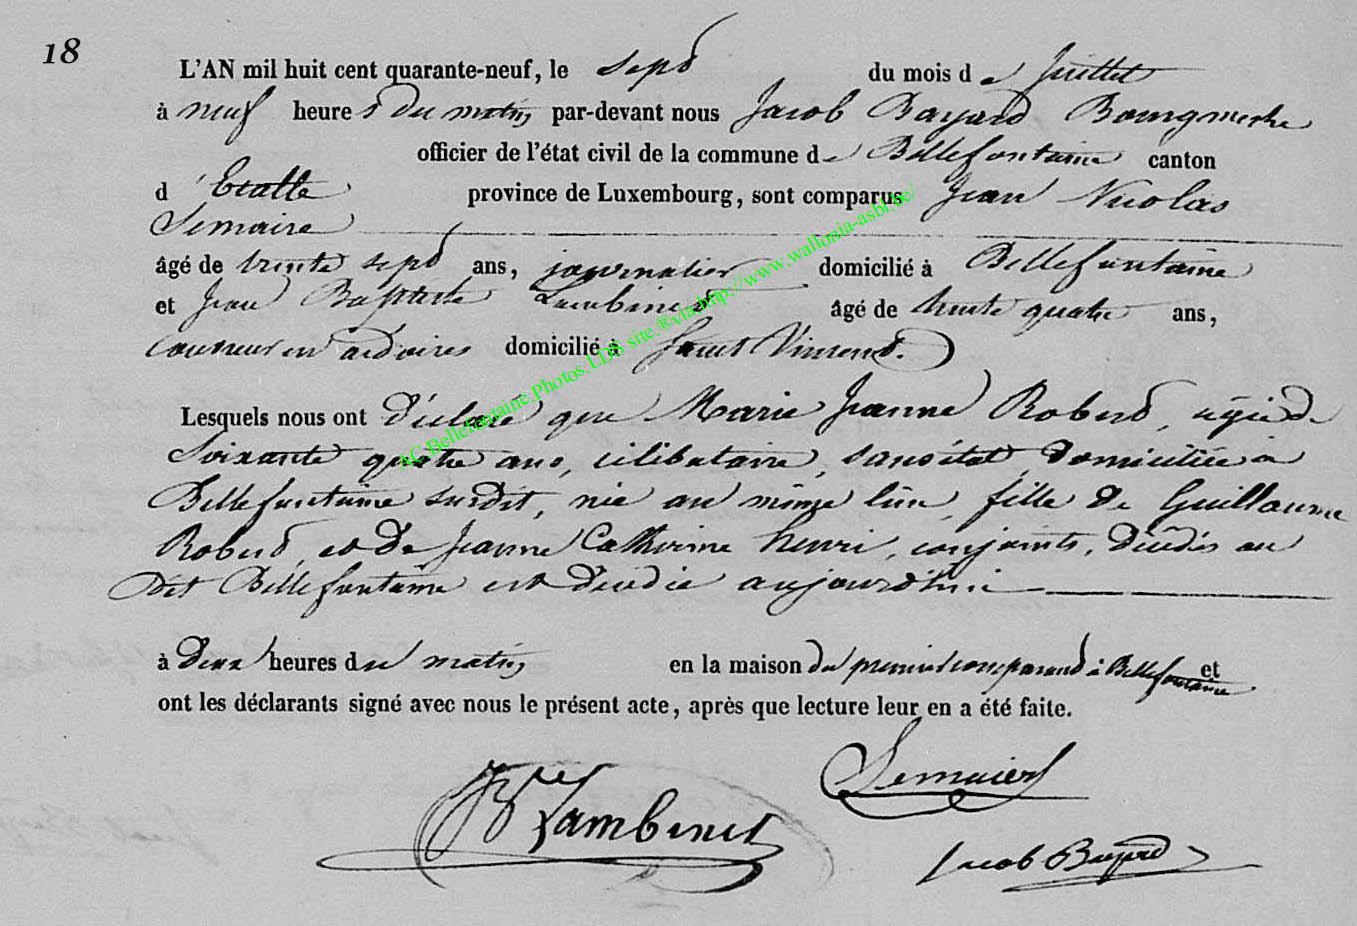 18
L'AN mil huit cent quarante-neuf, le sept du mois de Juillet
à neuf heures du matin par-devant nous Jacob Bayard Bourgmestre
officier de l'état civil de la commune de Bellefontaine canton
d'Etalle province de Luxembourg, sont comparus Jean Nicolas
Semaire
âgé de trente sept ans, journalier domicilié à Bellefontaine
et Jean Baptiste Lambinet âgé de trente quatre ans,
couvreur en ardoises domicilié à Saint Vincent.
Lesquels nous ont déclaré que Marie Jeanne Robert, agée de
Soixante quatre ans, célibataire, sans état, domiciliée à
Bellefontaine susdit, née au même lieu, fille de Guillaume
Robert, et de Jeanne Catherine henri, conjoints, décédés au
dit Bellefontaine est décédée aujourd'hui
à deux heures du matin en la maison du premier comparant à Bellefontaine et
ont les déclarants signé avec nous le présent acte, après que lecture leur en a été faite.
JB Lambinet Semaire
Jacob Bayard
AC.Bellefontaine.Photos.LDS site.®.via.http://www.wallonia-asbl.be/